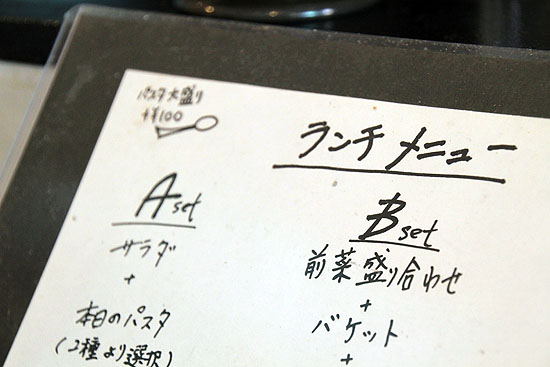 パスタ大盛り
+¥100
ランチ メニュー
A set
サラダ
+
本日のパスタ
(2種より選択)
B set
前菜盛り合わせ
+
バケット
+